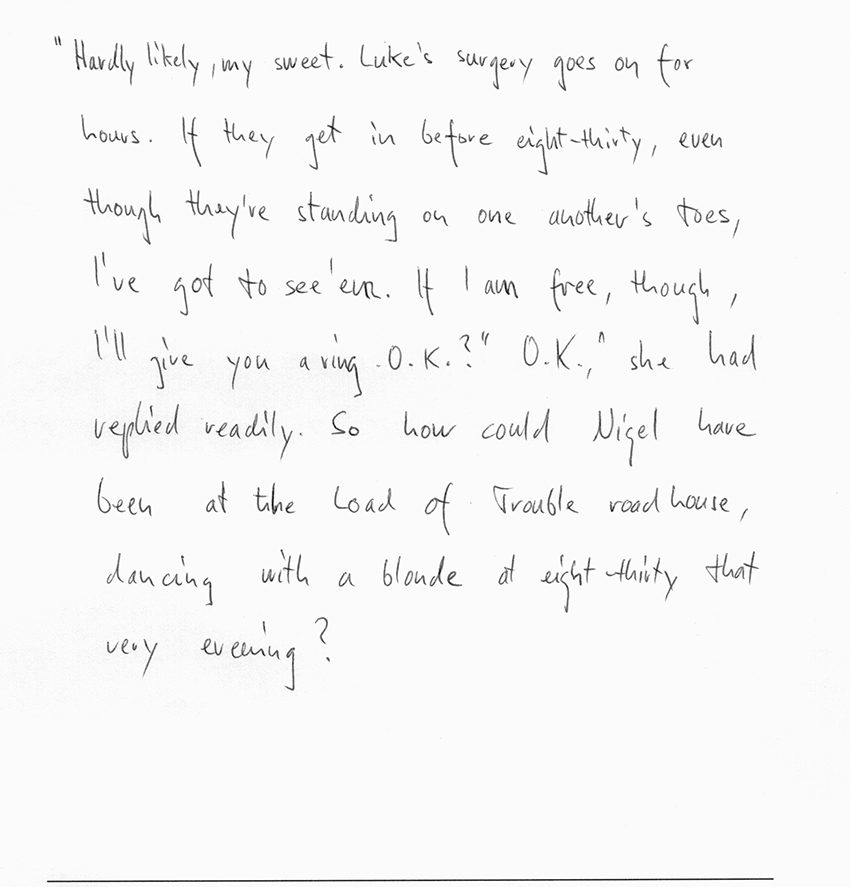 "Hardly likely, my sweet. Luke's surgery goes on for
hours. If they get in before eight-thirty, even
though they've standing on one another's toes,
I've got to see 'em. If I am free, though,
I'll give you a ring. O.K.?" O.K.," she had
replied readily. So how could Nigel have
been at the Load of Trouble roadhouse,
dancing with a blonde at eight-thirty that
very evening?